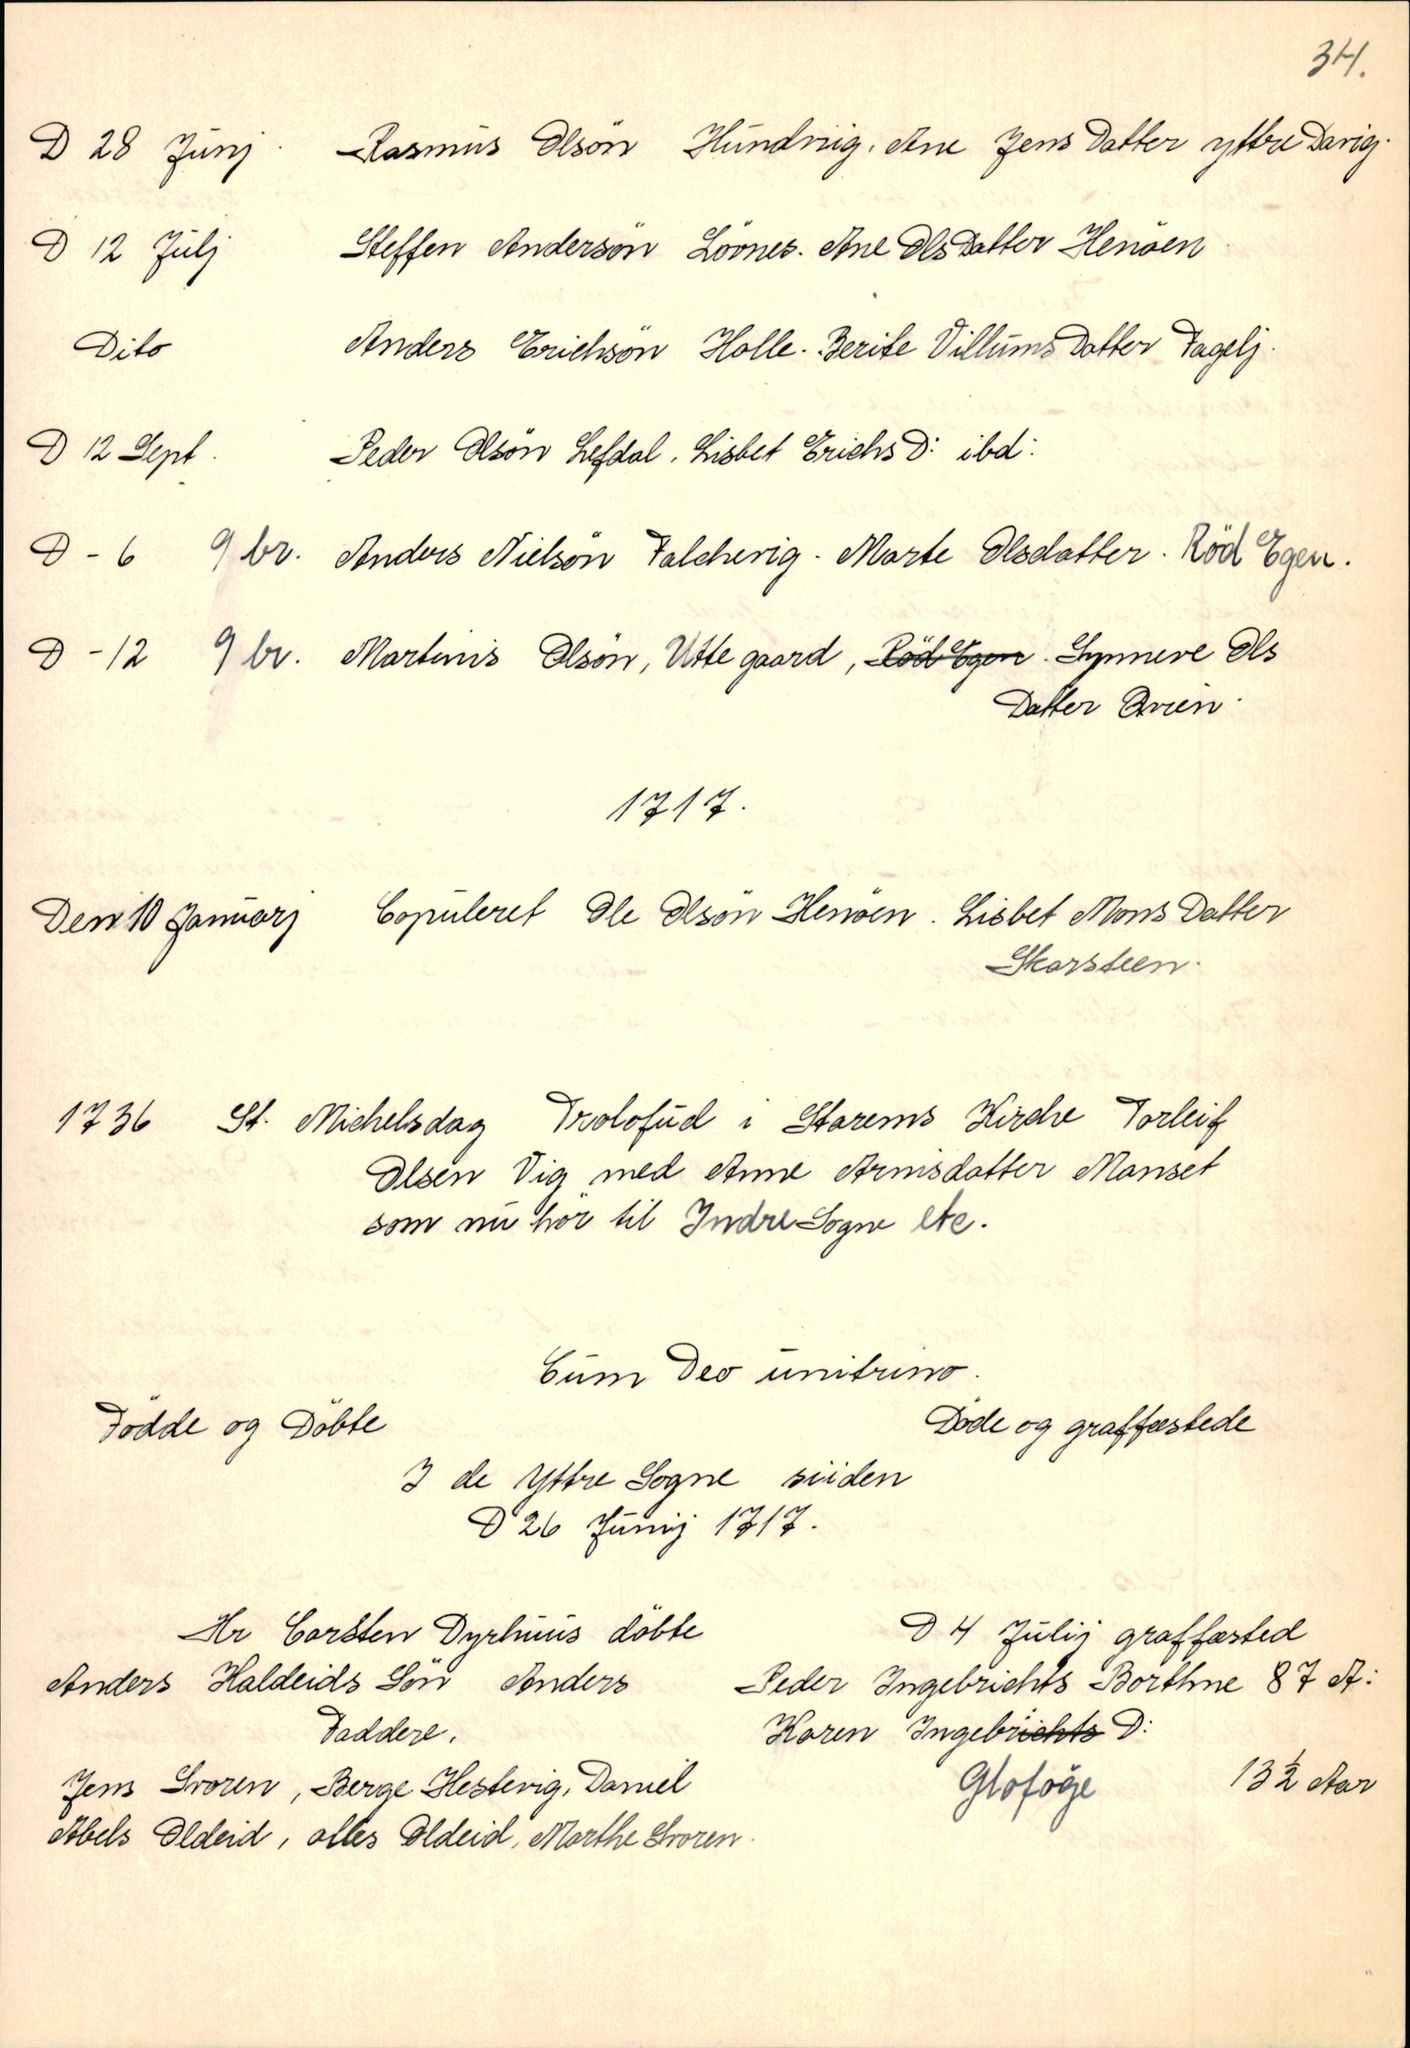 34.
D 28 Junj. Rasmus Olsön Hundviig. Ane Jens Datter yttre Davig.
D 12 Julj Steffen Andersön Löones. Ane Ols Datter Henöen
Dito Anders Erichsön Holle. Berite Villums Datter Fagelj.
D 12 Sept. Peder Olsön Lefdal. Lisbet Erichs D: ibd:
D - 6 9 br. Anders Nielsön Falchevig. Marte Olsdatter. Röd Egen.
D - 12 9 br. Martinis Olsön, Utte gaard, Röd Egen. Synneve Ols
Datter Qvien.
1717.
Den 10 Januarj Copuleret Ole Olsön Henöen. Lisbet Mons Datter
Skorsteen.
1736 St. Michelsdag Trolofud i Starems Kirche Torleif
Olsen Vig med Anne Arnisdatter Manset
som nu hör til Indre Sogne etc.
Cum Deo unitrino.
Födde og Döbte Döde og graffæstede
I de Yttre Sogne siiden
D 26 Junij 1717.
Hr Carsten Dyrhuus döbte
Anders Haldeids Sön Anders
Faddere.
Jens Svoren, Berge Hestevig, Daniel
Abels Oldeid, olles Oldeid, Marthe Svoren.
D 4 Julij graffæsted
Peder Ingebrichts Borthne 87 A:
Karen Ingebrichts D:
Gloföge 13 ½ Aar